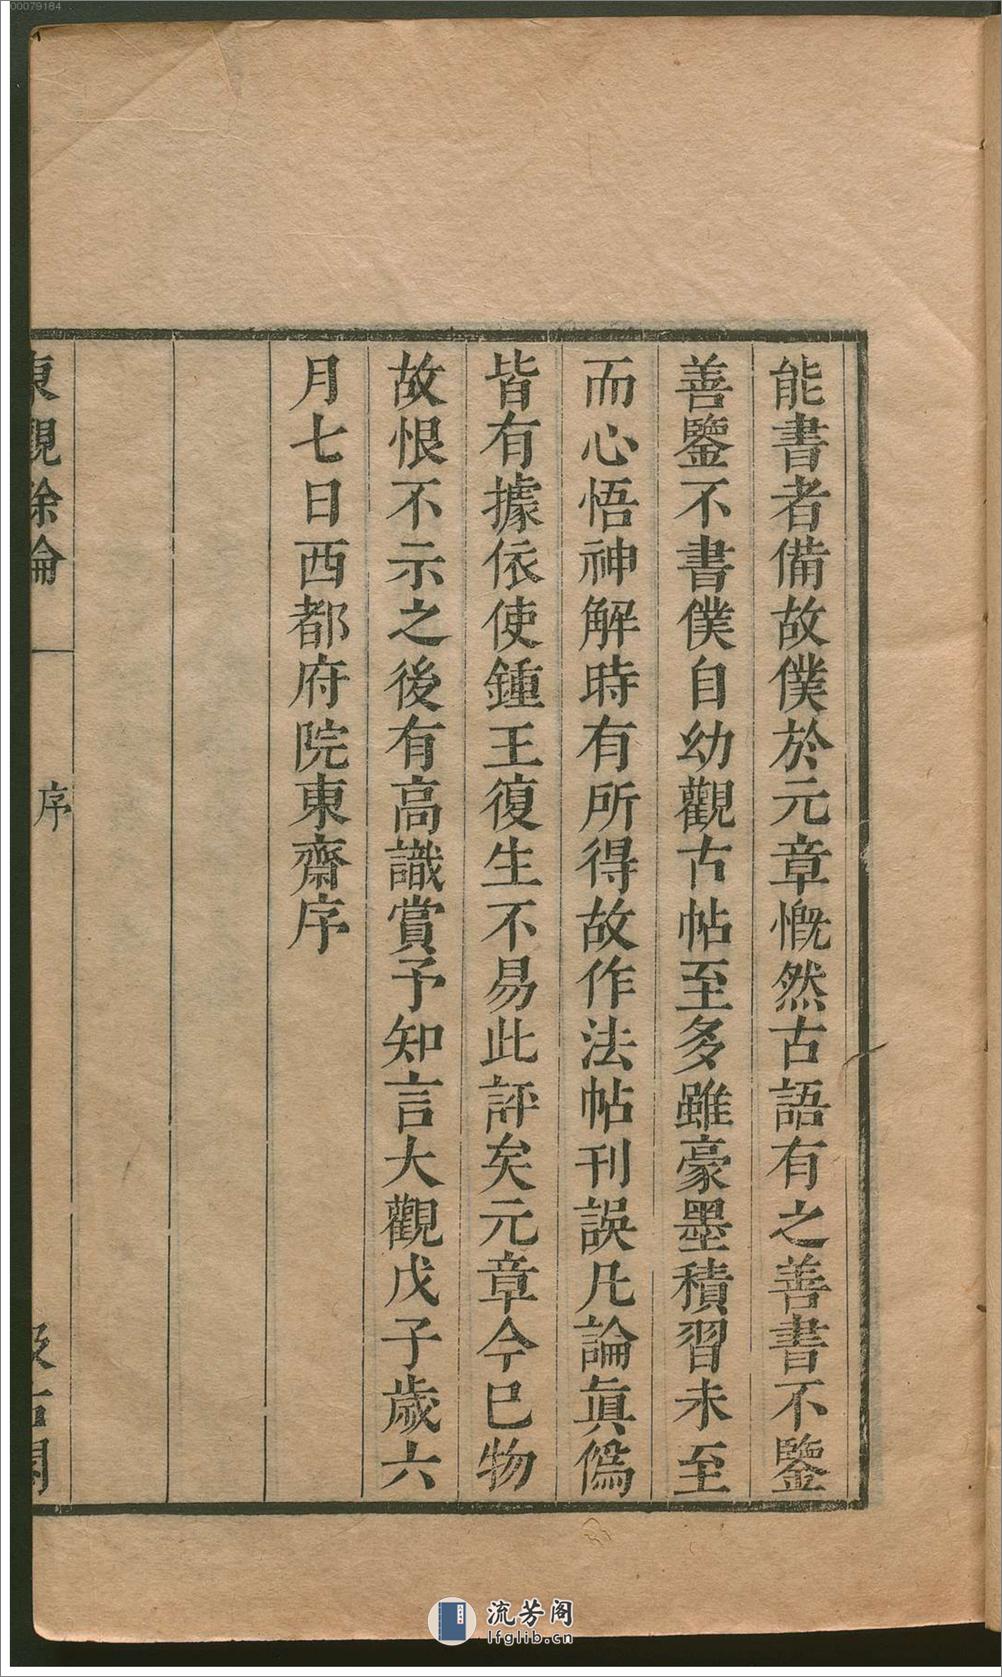 能書者備故僕於元章慨然古語有之善書不鑒
善鑒不書僕自幼觀古帖至多雖豪墨積習未至
而心悟神解時有所得故作法帖刊誤凡論眞僞
皆有據依使鍾王復生不易此評矣元章今已物
故恨不示之後有高識賞予知言大觀戊子歲六
月七日西都府院東齋序
東觀餘論
序
汲古閣
00079184
流芳阁
lfglib.cn